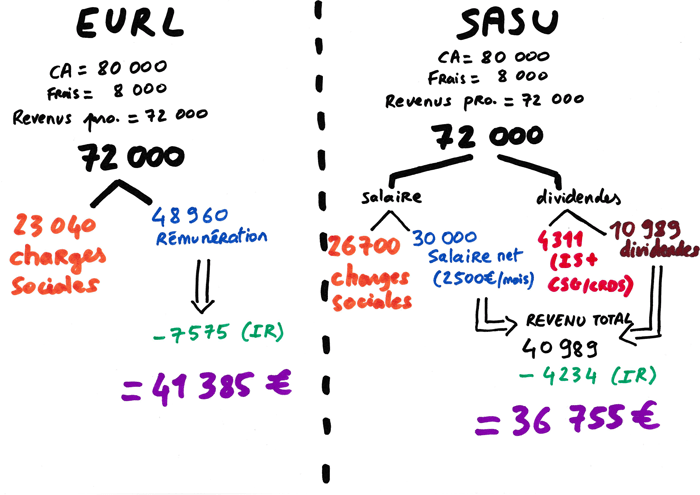 EURL
CA = 80 000
Frais = 8 000
Revenus pro. = 72 000
72 000
23 040
charges
sociales
48 960
Rémunération
- 7575 (IR)
= 41 385 €
SASU
CA = 80 000
Frais = 8 000
Revenus pro. = 72 000
72 000
salaire
dividendes
26700
charges
sociales
30 000
Salaire net
(2500€/mois)
4311
(IS +
CSG/CRDS)
10 989
dividendes
REVENU TOTAL
40 989
- 4234 (IR)
= 36 755 €